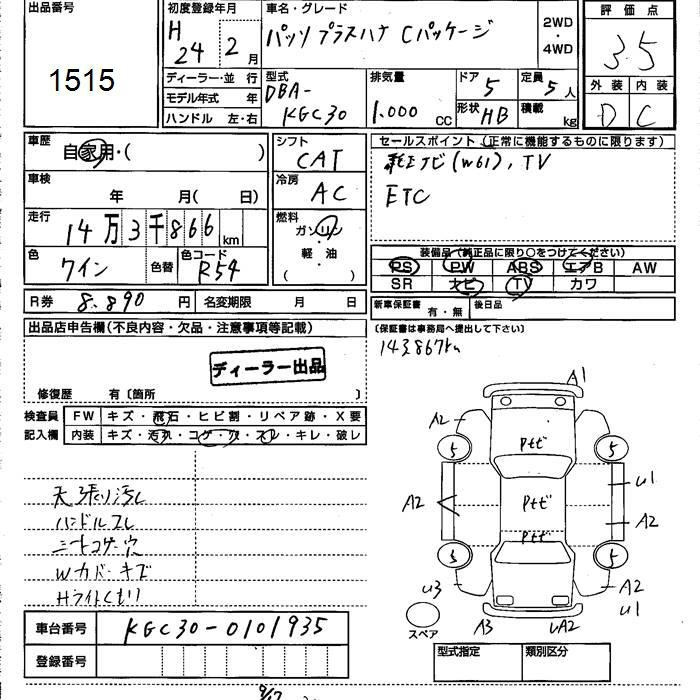 出品番号
1515
初度登録年月
H 24 2月
車名・グレード
パッソ プラスハナ Cパッケージ
2WD
・
4WD
評価点
3.5
外装 内装
D C
ディーラー・並 行
モデル年式 年
ハンドル 左・右
型式
DBA-
KGC30
排気量
1.000 CC
ドア 5
形状 HB
定員 5人
積載 kg
車歴
自家用・( )
車検
年 月( 日)
走行
14万3千866km
色
ワイン
色替
色コード
R54
シフト
CAT
冷房
AC
燃料
ガソリン
・
軽 油
( )
セールスポイント (正常に機能するものに限ります)
純正ナビ(W61), TV
ETC
装備品(純正品に限り○をつけてください)
PS PW ABS エアB AW
SR ナビ TV カワ
R券 8.890円
名変期限 月 日
新車保証書 有・無
後日品
(保証書は事務局へ提出して下さい)
143867km
出品店申告欄(不良内容・欠品・注意事項等記載)
ディーラー出品
修復歴 有〔箇所 〕
検査員
記入欄
FW キズ・飛石・ヒビ割・リペア跡・X要
内装 キズ・汚れ・コゲ・穴・スレ・キレ・破レ
天張り汚し
ハンドルスレ
シートコゲ穴
Wカド・キズ
Hライトくもり
A1
A2
5 5
Ptビ
U1
A2
Ptビ
A2
Ptビ
5 5
U3
A2
U1
スペア
A3
UA2
車台番号 KGC30-0101935
登録番号
型式指定 類別区分